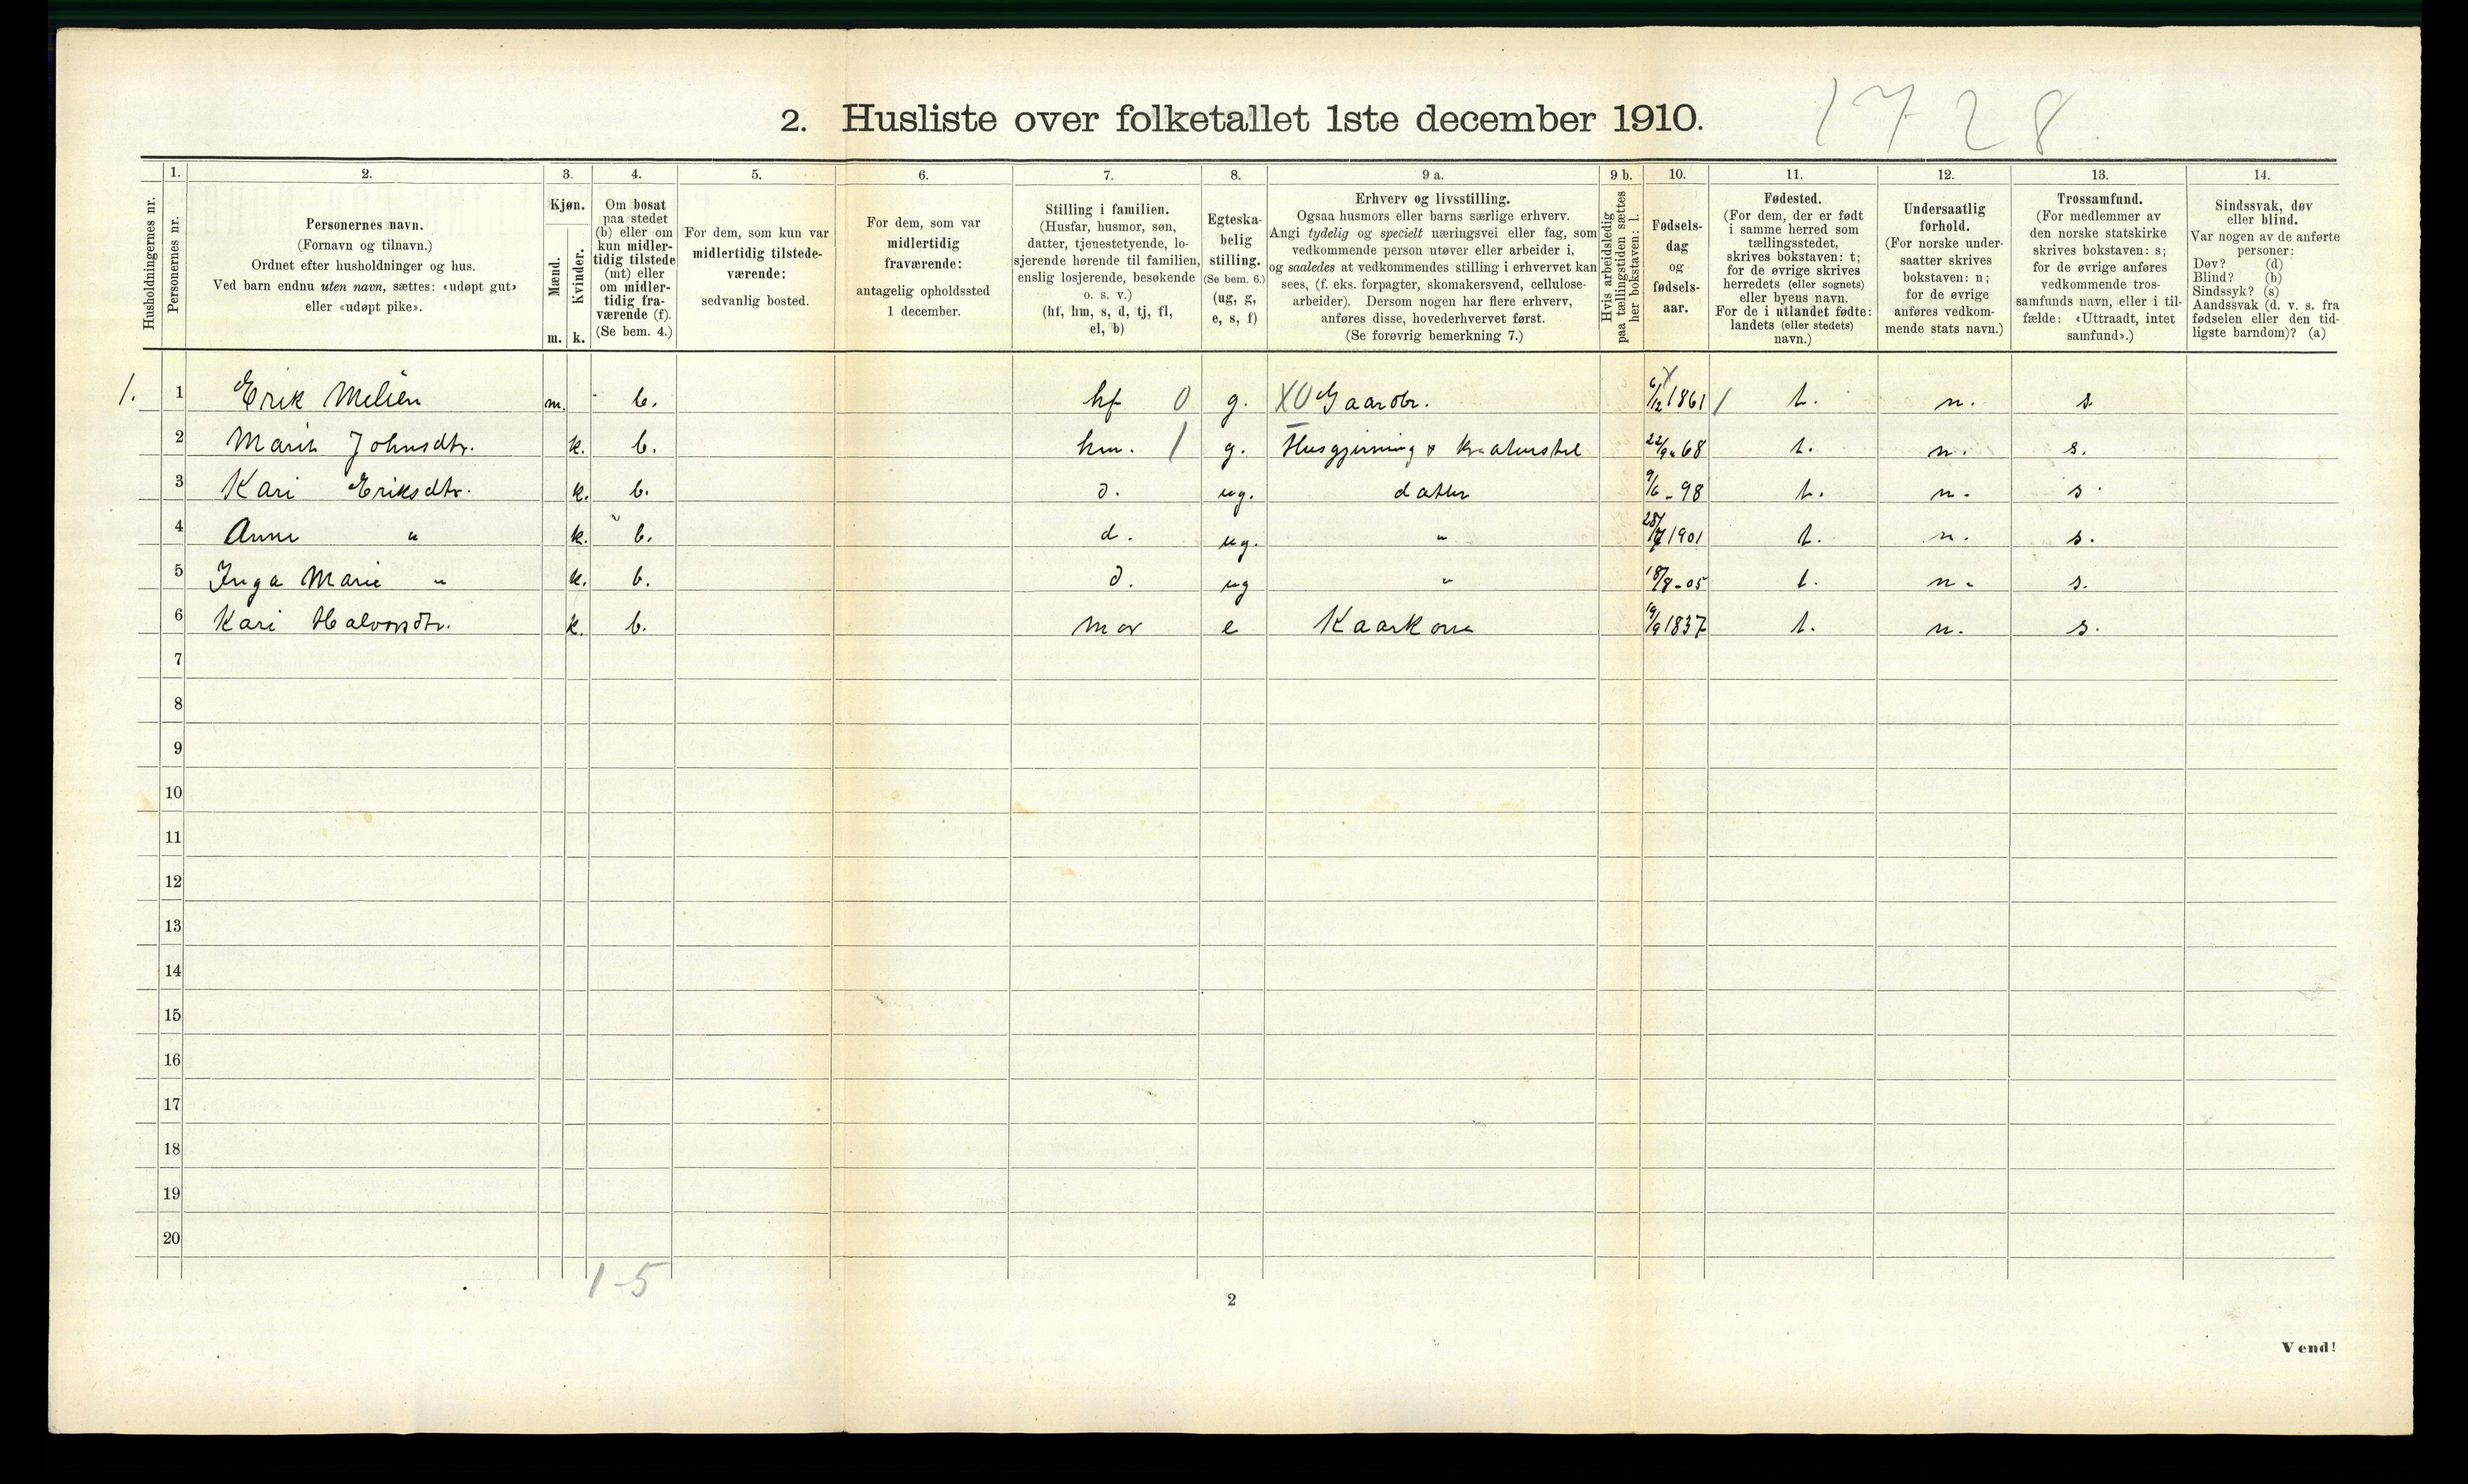 2. Husliste over folketallet 1ste december 1910.
1728
Husholdningernes nr.
1.
Personernes nr.
2.
Personernes navn.
(Fornavn og tilnavn.)
Ordnet efter husholdninger og hus.
Ved barn endnu uten navn, sættes: «udøpt gut»
eller «udøpt pike».
3.
Kjøn.
Mænd.
Kvinder.
m. k.
4.
Om bosat
paa stedet
(b) eller om
kun midler-
tidig tilstede
(mt) eller
om midler-
tidig fra-
værende (f).
(Se bem. 4.)
5.
For dem, som kun var
midlertidig tilstede-
værende:
sedvanlig bosted.
6.
For dem, som var
midlertidig
fraværende:
antagelig opholdssted
1 december.
7.
Stilling i familien.
(Husfar, husmor, søn,
datter, tjenestetyende, lo-
sjerende hørende til familien,
enslig losjerende, besøkende
o. s. v.)
(hf, hm, s, d, tj, fl,
el, b)
8.
Egteska-
belig
stilling.
(Se bem. 6.)
(ug, g,
e, s, f)
9 a.
Erhverv og livsstilling.
Ogsaa husmors eller barns særlige erhverv.
Angi tydelig og specielt næringsvei eller fag, som
vedkommende person utøver eller arbeider i,
og saaledes at vedkommendes stilling i erhvervet kan
sees, (f. eks. forpagter, skomakersvend, cellulose-
arbeider). Dersom nogen har flere erhverv,
anføres disse, hovederhvervet først.
(Se forøvrig bemerkning 7.)
9 b.
Hvis arbeidsledig
paa tællingstiden sættes
her bokstaven: l.
10.
Fødsels-
dag
og
fødsels-
aar.
11.
Fødested.
(For dem, der er født
i samme herred som
tællingsstedet,
skrives bokstaven: t;
for de øvrige skrives
herredets (eller sognets)
eller byens navn.
For de i utlandet fødte:
landets (eller stedets)
navn.)
12.
Undersaatlig
forhold.
(For norske under-
saatter skrives
bokstaven: n;
for de øvrige
anføres vedkom-
mende stats navn.)
13.
Trossamfund.
(For medlemmer av
den norske statskirke
skrives bokstaven: s;
for de øvrige anføres
vedkommende tros-
samfunds navn, eller i til-
fælde: «Uttraadt, intet
samfund».)
14.
Sindssvak, døv
eller blind.
Var nogen av de anførte
personer:
Døv? (d)
Blind? (b)
Sindssyk? (s)
Aandssvak (d. v. s. fra
fødselen eller den tid-
ligste barndom)? (a)
1. 1 Erik Melien m. b. hf 0 g. X0 Gaardbr. 6/12 1861 / t. n. s.
2 Marit Johnsdtr. k. b. hm. 1 g. Husgjerning & Kreaturstel 22/9-68 t. n. s.
3 Kari Eriksdtr. k. b. d. ug. datter 9/6-98 t. n. s.
4 Anne " k. b. d. ug. " 28/7 1901 t. n. s.
5 Inga Marie " k. b. d. ug " 18/8-05 t. n. s.
6 Kari Halvorsdtr. k. b. mor e Kaarkone 19/9 1837 t. n. s.
7
8
9
10
11
12
13
14
15
16
17
18
19
20
1-5
2
Vend!